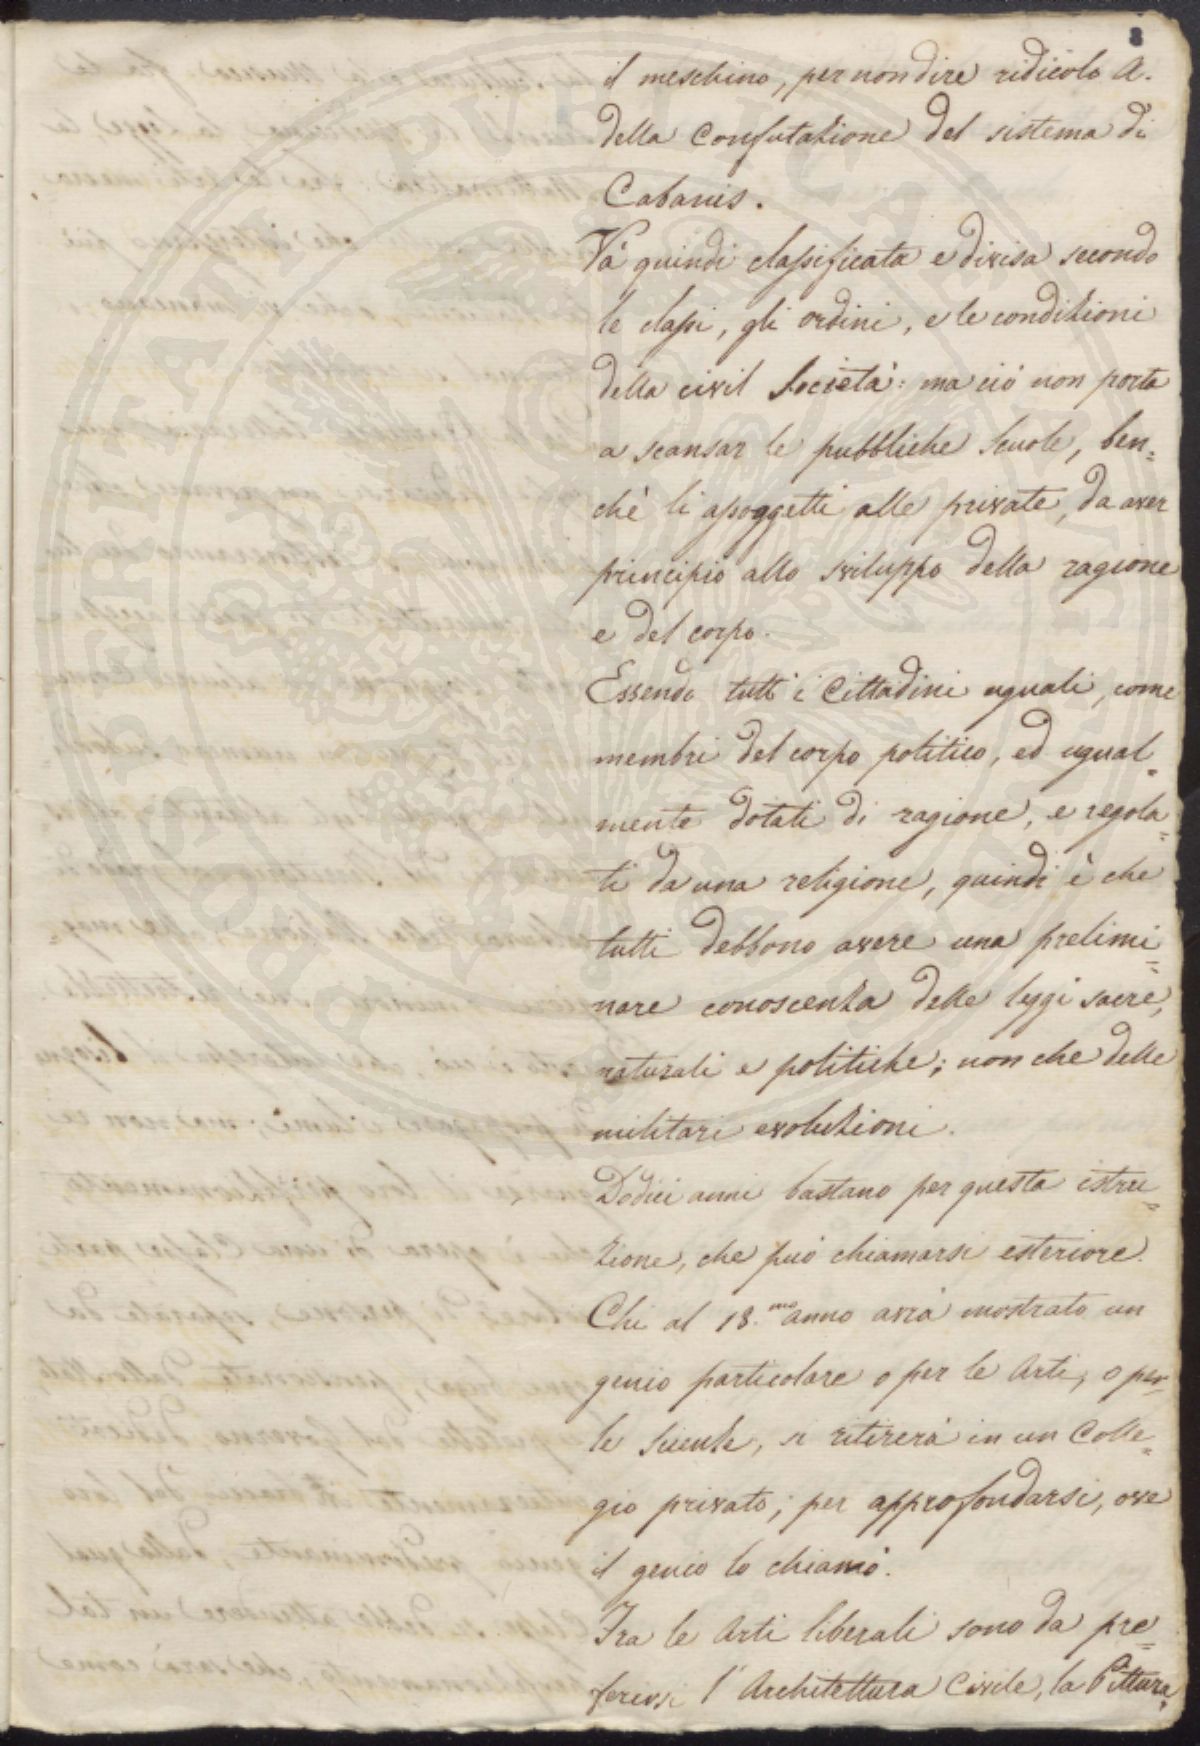 8
il meschino, per non dire ridicolo A.
della Confutazione del sistema di
Cabanis.
Và quindi classificata e divisa secondo
le classi, gli ordini, e le condizioni
della civil Società: ma ciò non porta
a scansar le pubbliche Scuole, ben=
chè li assoggetti alle private, da aver
principio allo sviluppo della ragione
e del corpo.
Essendo tutti i Cittadini uguali, come
membri del corpo politico, ed ugual=
mente dotati di ragione, e regola=
ti da una religione, quindi è che
tutti debbono avere una prelimi=
nare conoscenza delle leggi sacre,
naturali e politiche; non che delle
militari evoluzioni.
Dodici anni bastano per questa istru=
zione, che può chiamarsi esteriore.
Chi al 18.mo anno avrà mostrato un
genio particolare o per le Arti, o per
le Scienze, si ritirerà in un Colle=
gio privato; per approfondarsi, ove
il genio lo chiamò.
Fra le Arti liberali sono da pre=
ferirsi l'Architettura Civile, la Pittura,